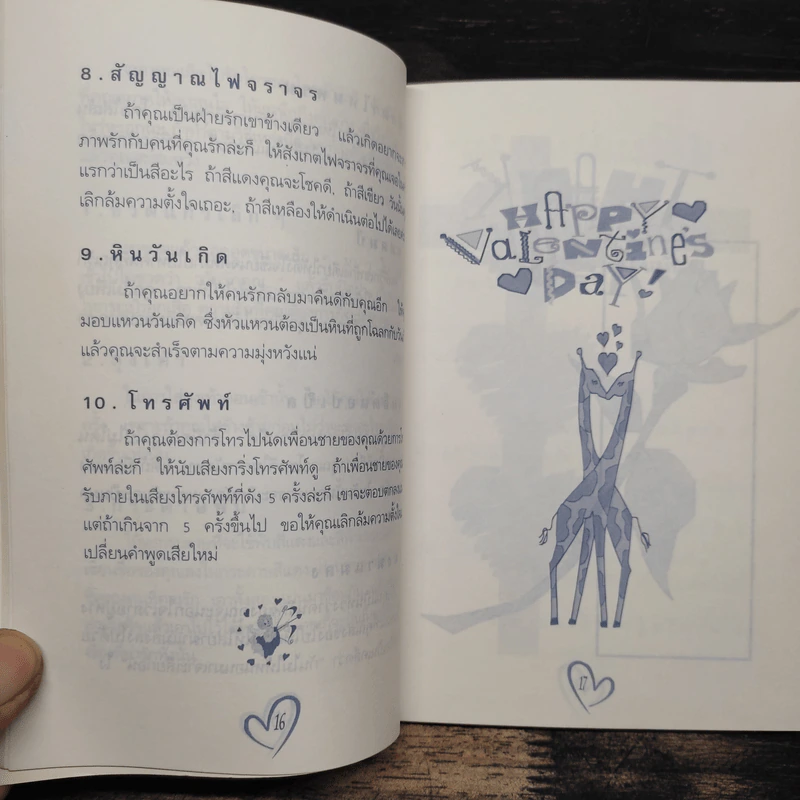 8. สัญญาณไฟจราจร
ถ้าคุณเป็นฝ่ายรักเขาข้างเดียว แล้วเกิดอยาก
ภาพรักกับคนที่คุณรักล่ะก็ ให้สังเกตไฟจราจรที่คุณ
แรกว่าเป็นสีอะไร ถ้าสีแดงคุณจะโชคดี, ถ้าสีเขียว วันนี้
เลิกล้มความตั้งใจเถอะ, ถ้าสีเหลืองให้ดำเนินต่อไปได้
9. หินวันเกิด
ถ้าคุณอยากให้คนรักกลับมาคืนดีกับคุณอีก
มอบแหวนวันเกิด ซึ่งหัวแหวนต้องเป็นหินที่ถูกโฉลกกับ
แล้วคุณจะสำเร็จตามความมุ่งหวังแน่
10. โทรศัพท์
ถ้าคุณต้องการโทรไปนัดเพื่อนชายของคุณด้วย
ศัพท์ล่ะก็ ให้นับเสียงกริ่งโทรศัพท์ดู ถ้าเพื่อนชายของ
รับภายในเสียงโทรศัพท์ที่ดัง 5 ครั้งล่ะก็ เขาจะตอบ
แต่ถ้าเกินจาก 5 ครั้งขึ้นไป ขอให้คุณเลิกล้มความ
เปลี่ยนคำพูดเสียใหม่
16
HAPPY
ValENtiNe's
DaY!
17